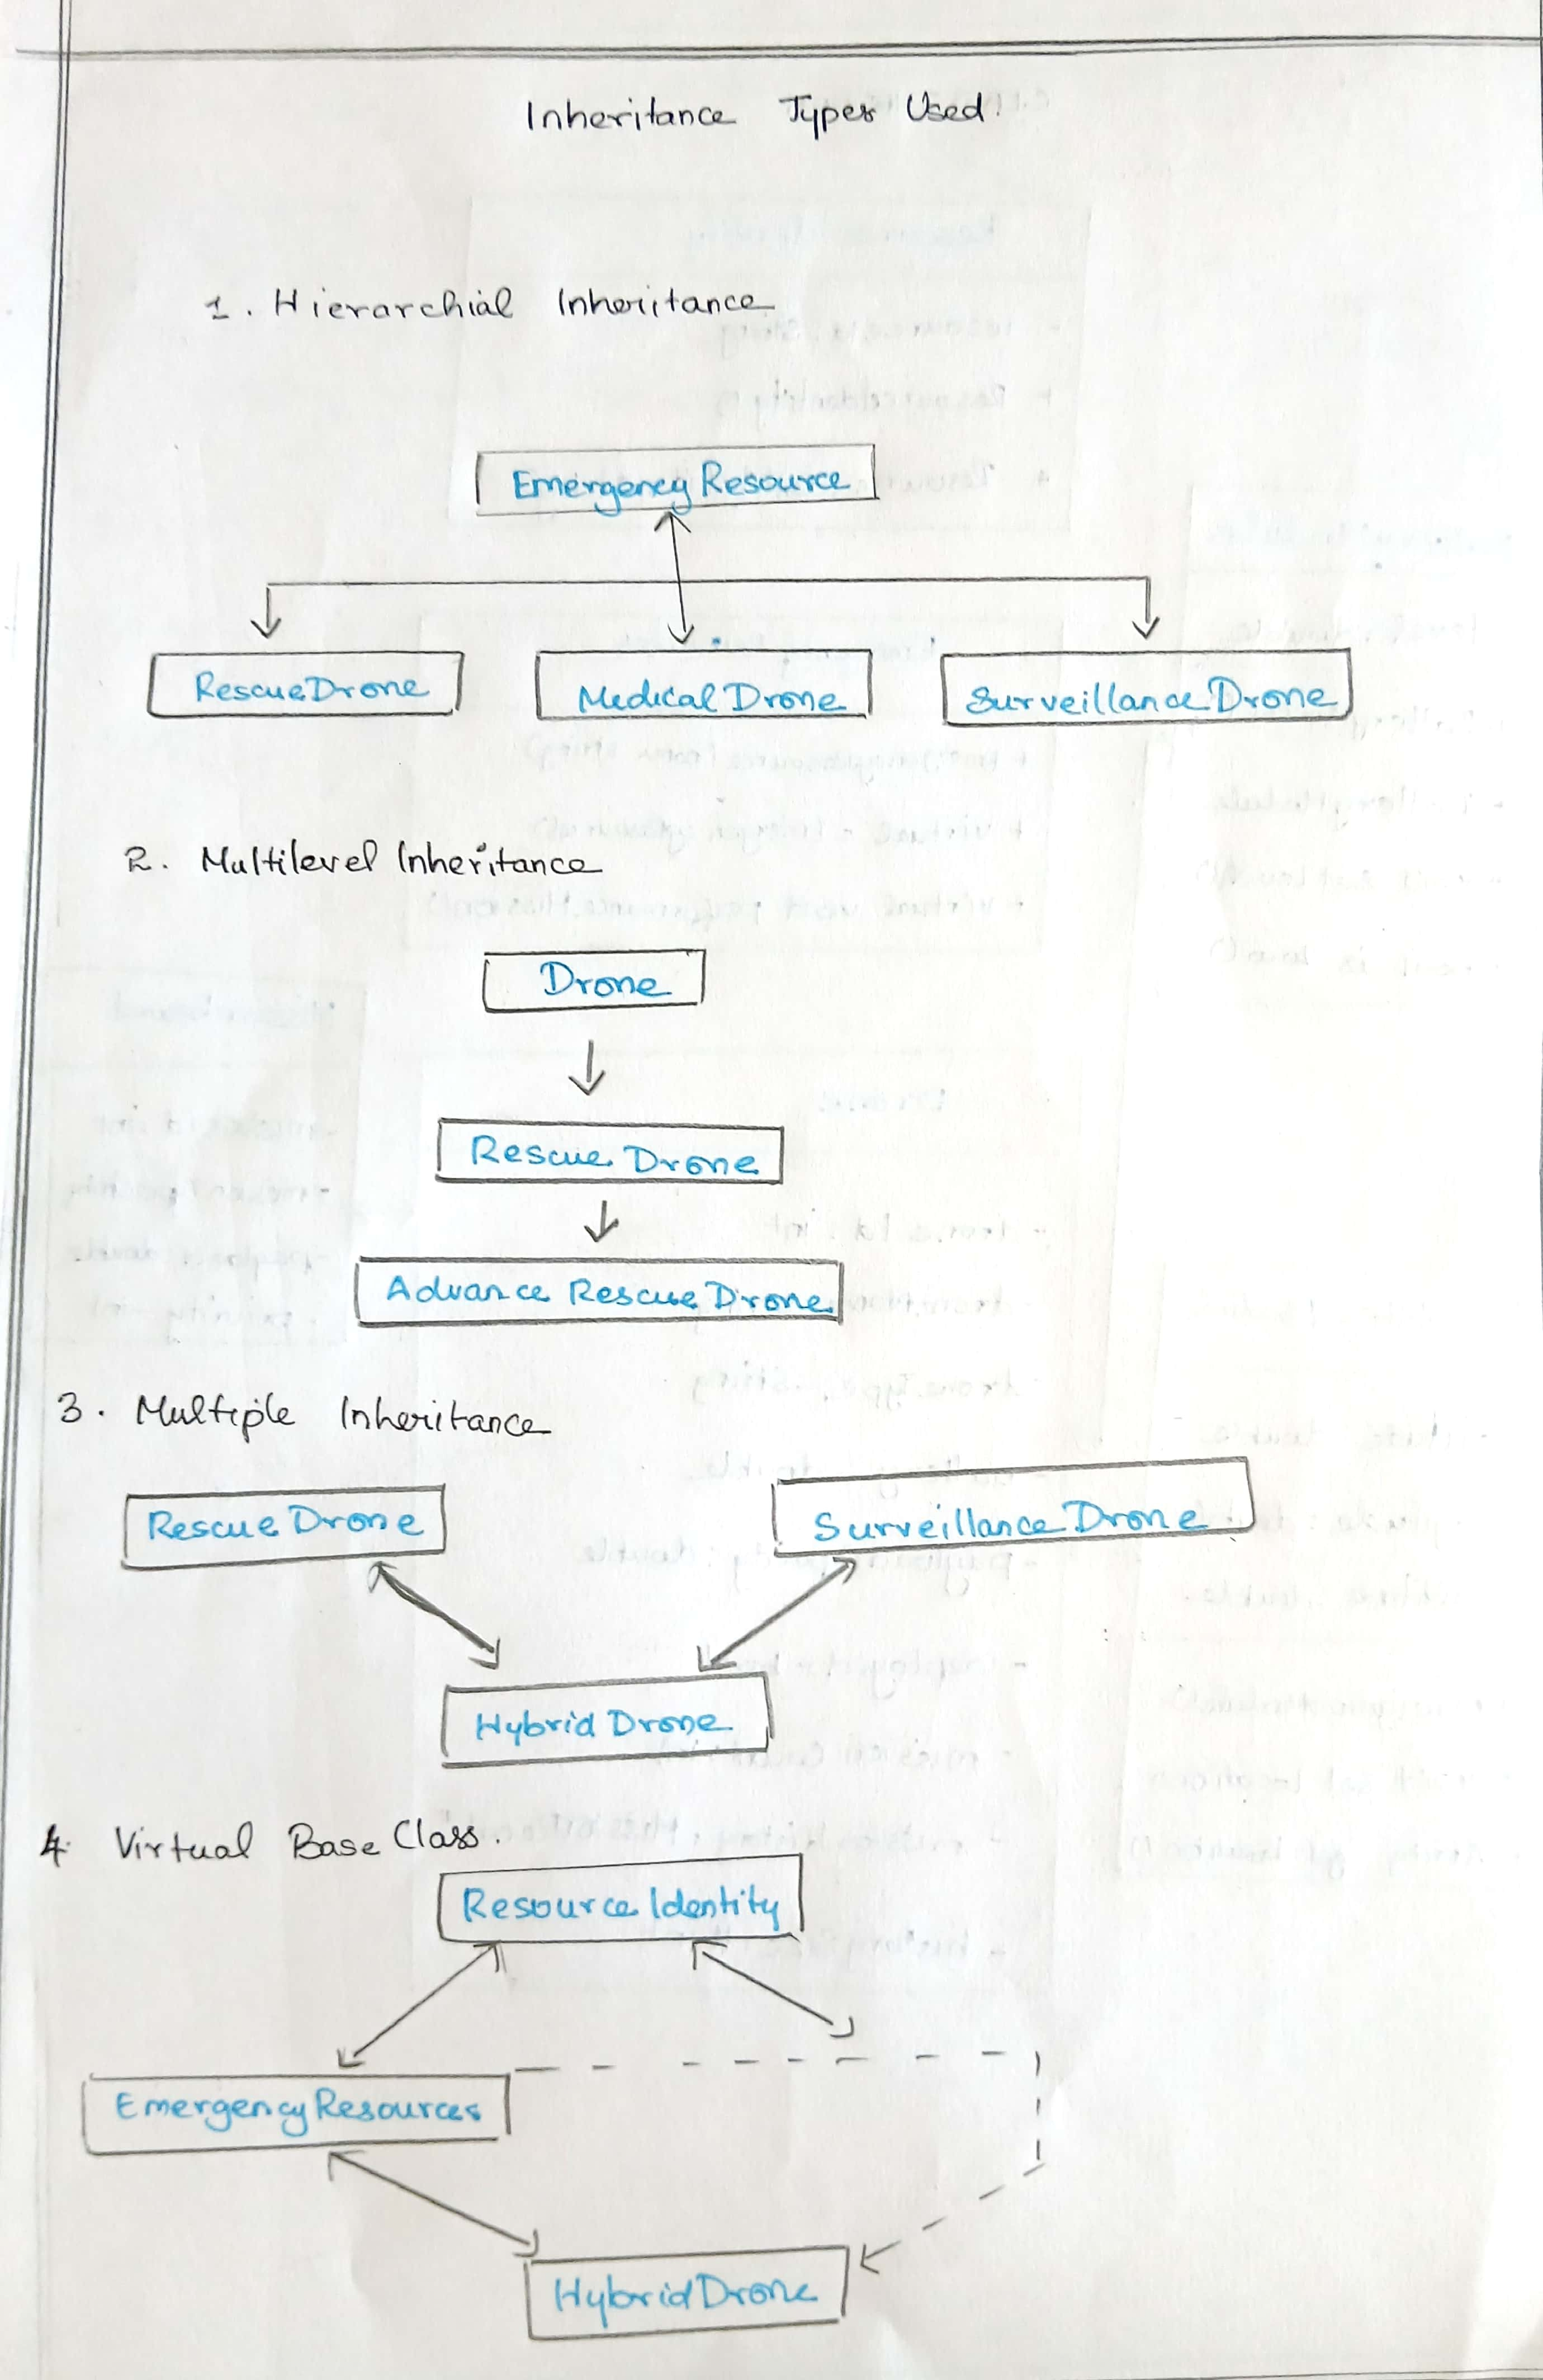 Inheritance Types Used.
1. Hierarchial Inheritance
Emergency Resource
Rescue Drone Medical Drone Surveillance Drone
2. Multilevel Inheritance
Drone
Rescue Drone
Advance Rescue Drone
3. Multiple Inheritance
Rescue Drone Surveillance Drone
Hybrid Drone
4. Virtual Base Class.
Resource Identity
Emergency Resources
Hybrid Drone